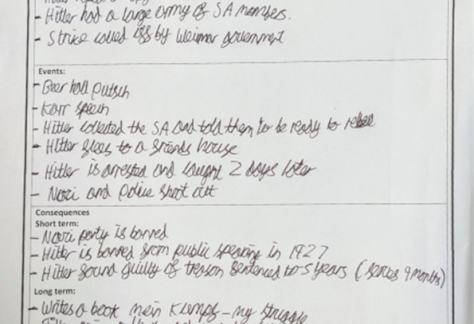 - Hitler had a large army of SA members.
- Strike called off by Weimar government
Events:
- Beer hall putsch
- Karr speech
- Hitler collected the SA and told them to be ready to rebel
- Hitler flees to a friends house
- Hitler is arrested and caught 2 days later
- Nazi and police shoot out
Consequences
Short term:
- Nazi party is banned
- Hitler is banned from public speaking in 1927
- Hitler found guilty of treason sentenced to 5 years (serves 9 months)
Long term:
- Writes a book mein Kampf - my struggle